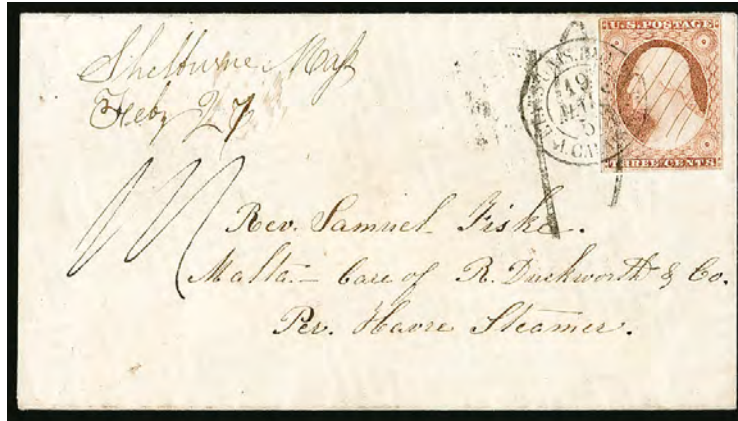 Shelburne Mass
Feby 27
U.S. POSTAGE
THREE CENTS
19
Rev. Samuel Fiske.
Malta.— Care of R. Duckworth & Co.
Per. Havre Steamer.